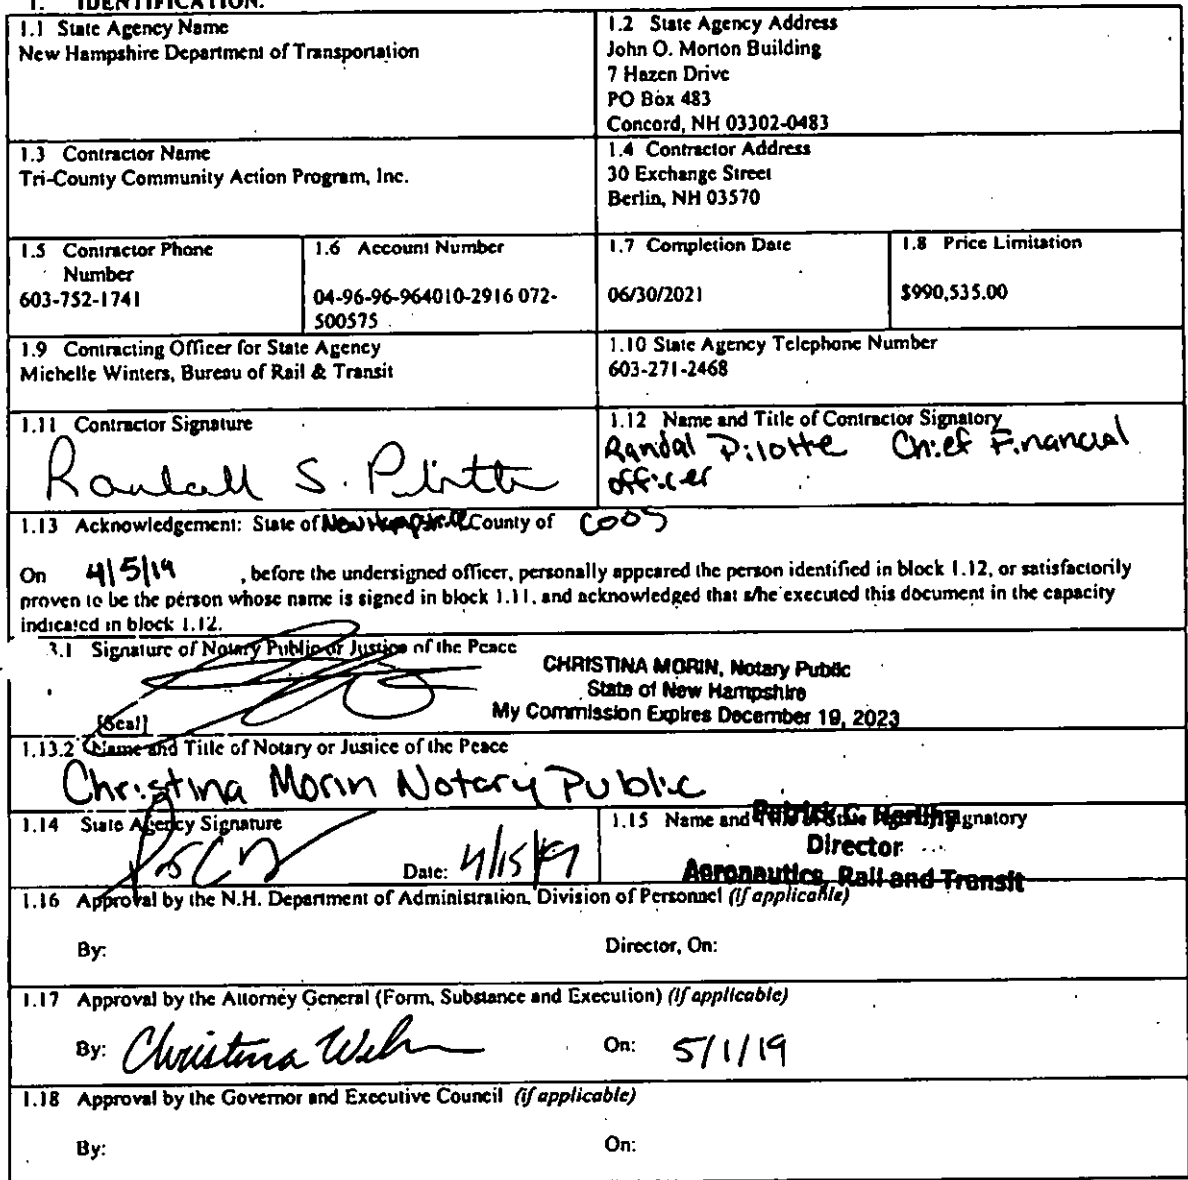 1. IDENTIFICATION.
1.1 State Agency Name
New Hampshire Department of Transportation
1.2 State Agency Address
John O. Morton Building
7 Hazen Drive
PO Box 483
Concord, NH 03302-0483
1.3 Contractor Name
Tri-County Community Action Program, Inc.
1.4 Contractor Address
30 Exchange Street
Berlin, NH 03570
1.5 Contractor Phone
Number
603-752-1741
1.6 Account Number
04-96-96-964010-2916 072-
500575
1.7 Completion Date
06/30/2021
1.8 Price Limitation
$990,535.00
1.9 Contracting Officer for State Agency
Michelle Winters, Bureau of Rail & Transit
1.10 State Agency Telephone Number
603-271-2468
1.11 Contractor Signature
Randall S. Pilotte
1.12 Name and Title of Contractor Signatory
Randal Pilotte Chief Financial
officer
1.13 Acknowledgement: State of New Hampshire County of COOS
On 4/5/19 , before the undersigned officer, personally appeared the person identified in block 1.12, or satisfactorily
proven to be the person whose name is signed in block 1.11, and acknowledged that s/he executed this document in the capacity
indicated in block 1.12.
3.1 Signature of Notary Public or Justice of the Peace
CHRISTINA MORIN, Notary Public
State of New Hampshire
My Commission Expires December 19, 2023
[Seal]
1.13.2 Name and Title of Notary or Justice of the Peace
Christina Morin Notary Public
1.14 State Agency Signature
Date: 4/15/19
1.15 Name and Title of State Agency Signatory
Patrick C. Herlihy
Director
Aeronautics, Rail and Transit
1.16 Approval by the N.H. Department of Administration, Division of Personnel (if applicable)
By: Director, On:
1.17 Approval by the Attorney General (Form, Substance and Execution) (if applicable)
By: Christina Wil On: 5/1/19
1.18 Approval by the Governor and Executive Council (if applicable)
By: On: